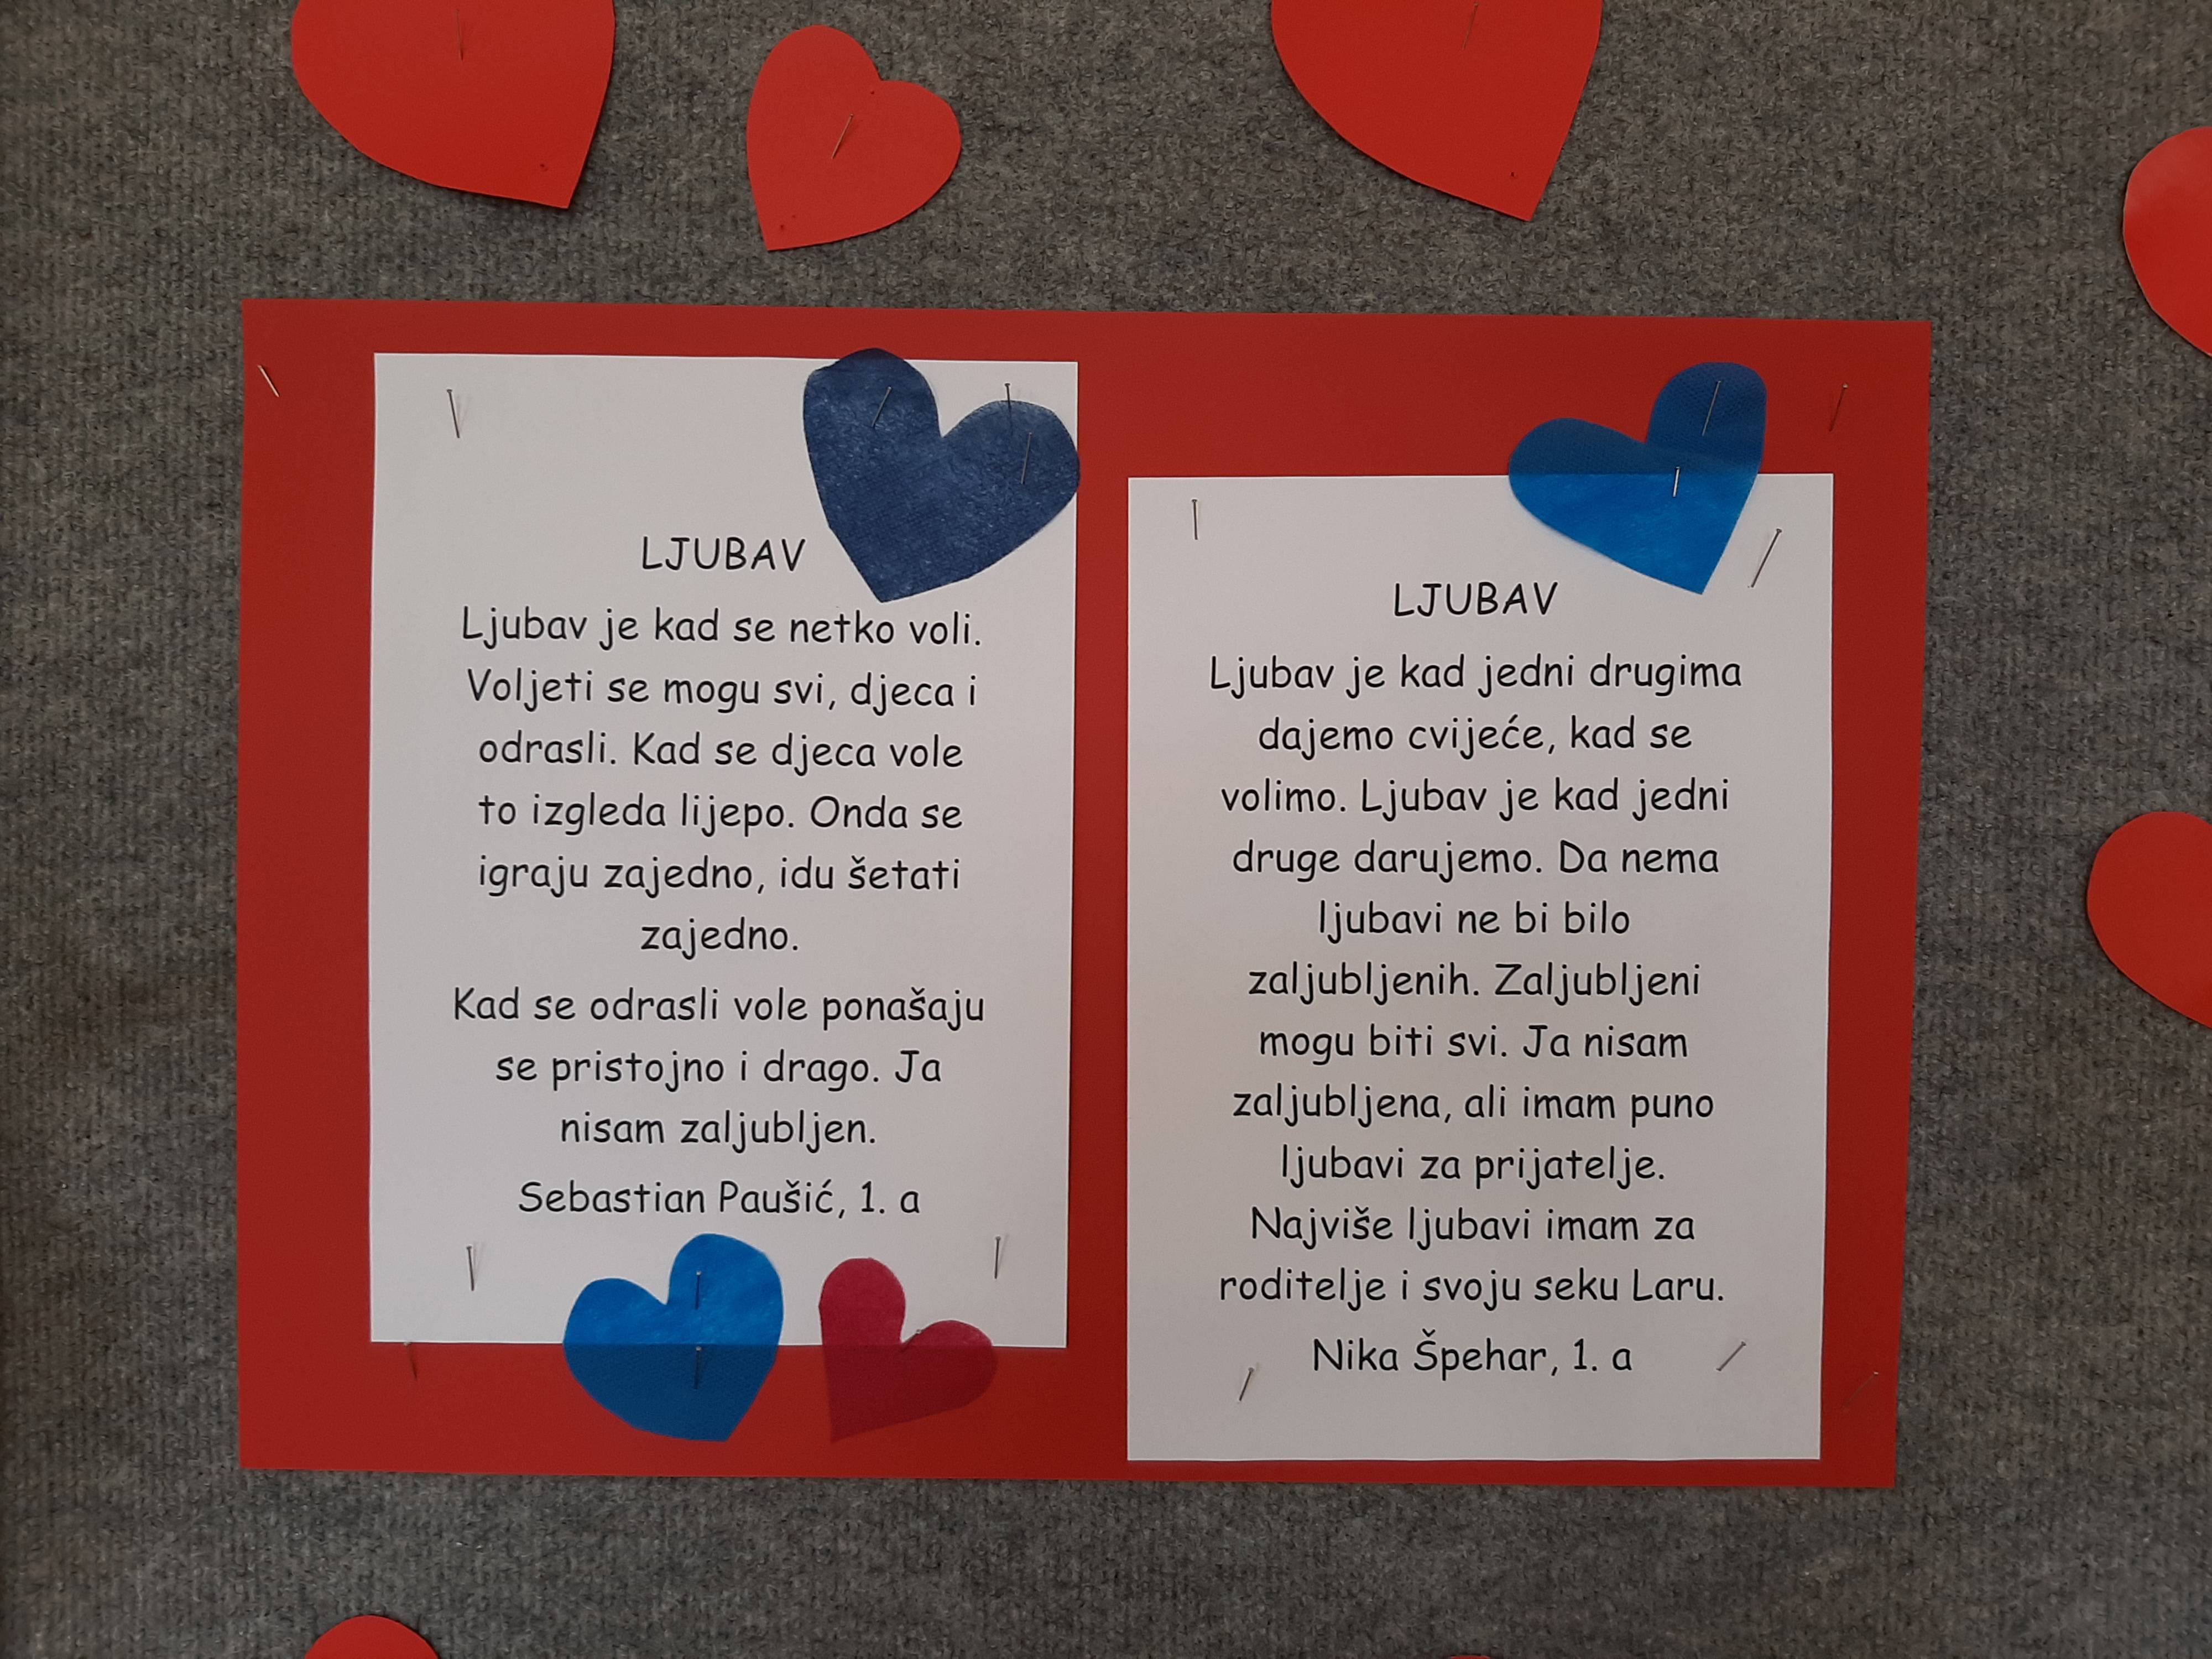 LJUBAV
Ljubav je kad se netko voli.
Voljeti se mogu svi, djeca i
odrasli. Kad se djeca vole
to izgleda lijepo. Onda se
igraju zajedno, idu šetati
zajedno.
Kad se odrasli vole ponašaju
se pristojno i drago. Ja
nisam zaljubljen.
Sebastian Paušić, 1. a
LJUBAV
Ljubav je kad jedni drugima
dajemo cvijeće, kad se
volimo. Ljubav je kad jedni
druge darujemo. Da nema
ljubavi ne bi bilo
zaljubljenih. Zaljubljeni
mogu biti svi. Ja nisam
zaljubljena, ali imam puno
ljubavi za prijatelje.
Najviše ljubavi imam za
roditelje i svoju seku Laru.
Nika Špehar, 1. a